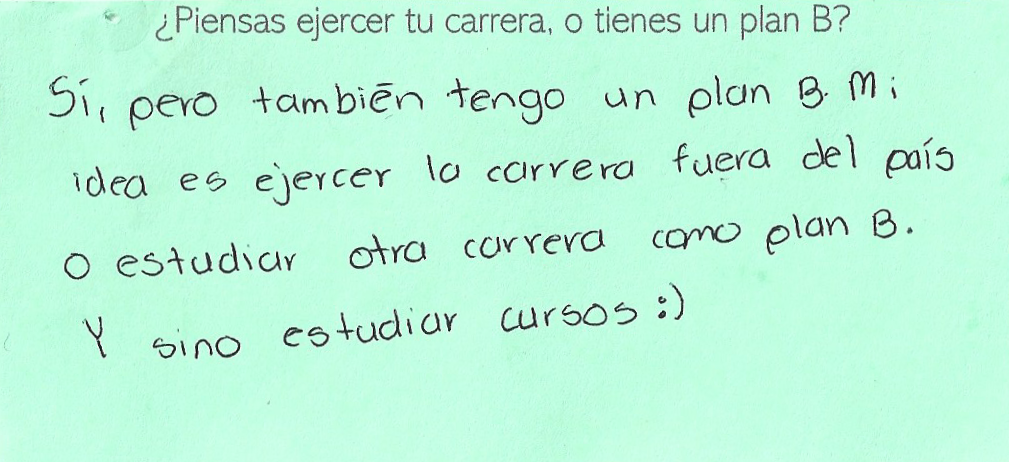 ¿Piensas ejercer tu carrera, o tienes un plan B?
Sí, pero también tengo un plan B. Mi
idea es ejercer la carrera fuera del país
o estudiar otra carrera como plan B.
Y sino estudiar cursos :)